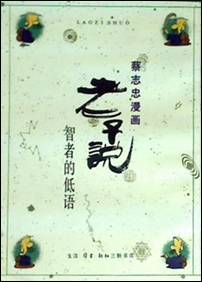 LAOZI SHUO
蔡志忠漫画
老子説
智者的低语
生活·读书·新知三联书店